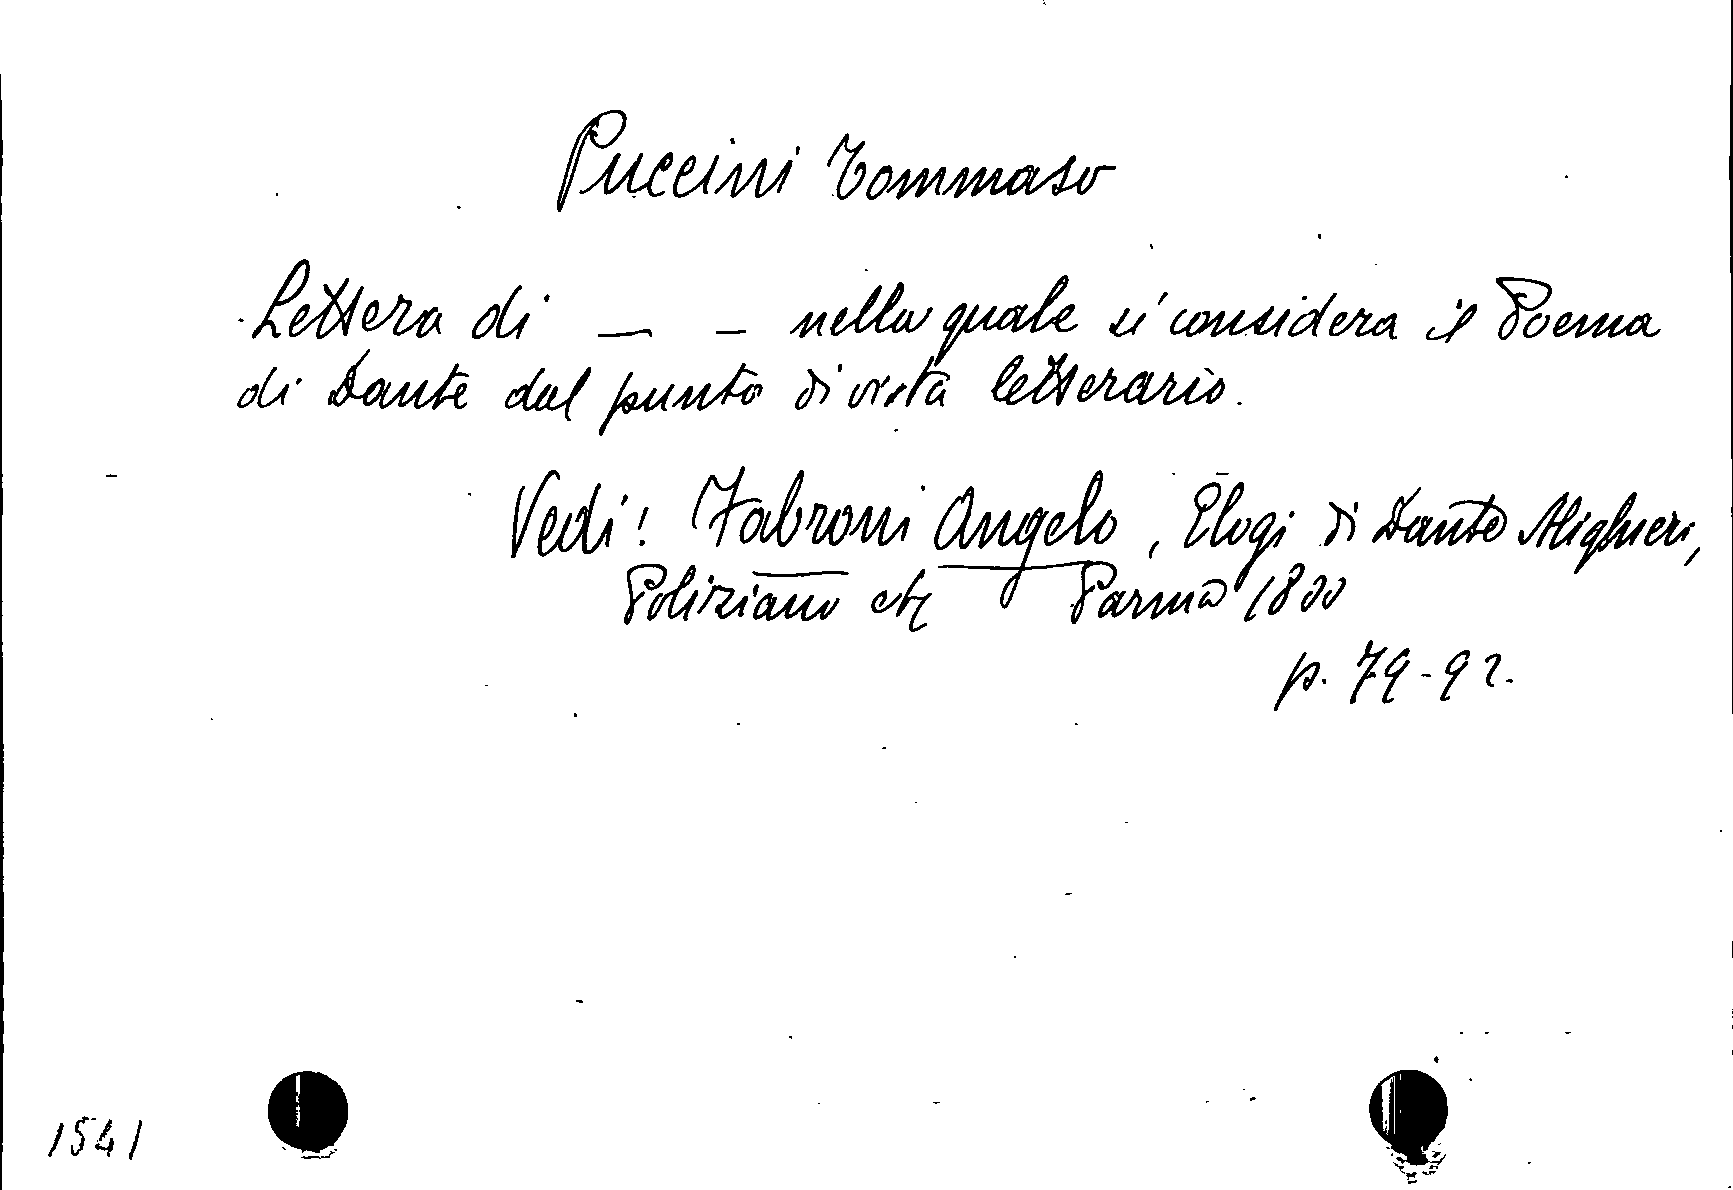 Puccini Tommaso
Lettera di — — nella quale si considera il Poema
di Dante dal punto di vista letterario.
Vedi: Fabroni Angelo, Elogi di Dante Alighieri,
Poliziano etc Parma 1800
p. 79-92.
1541